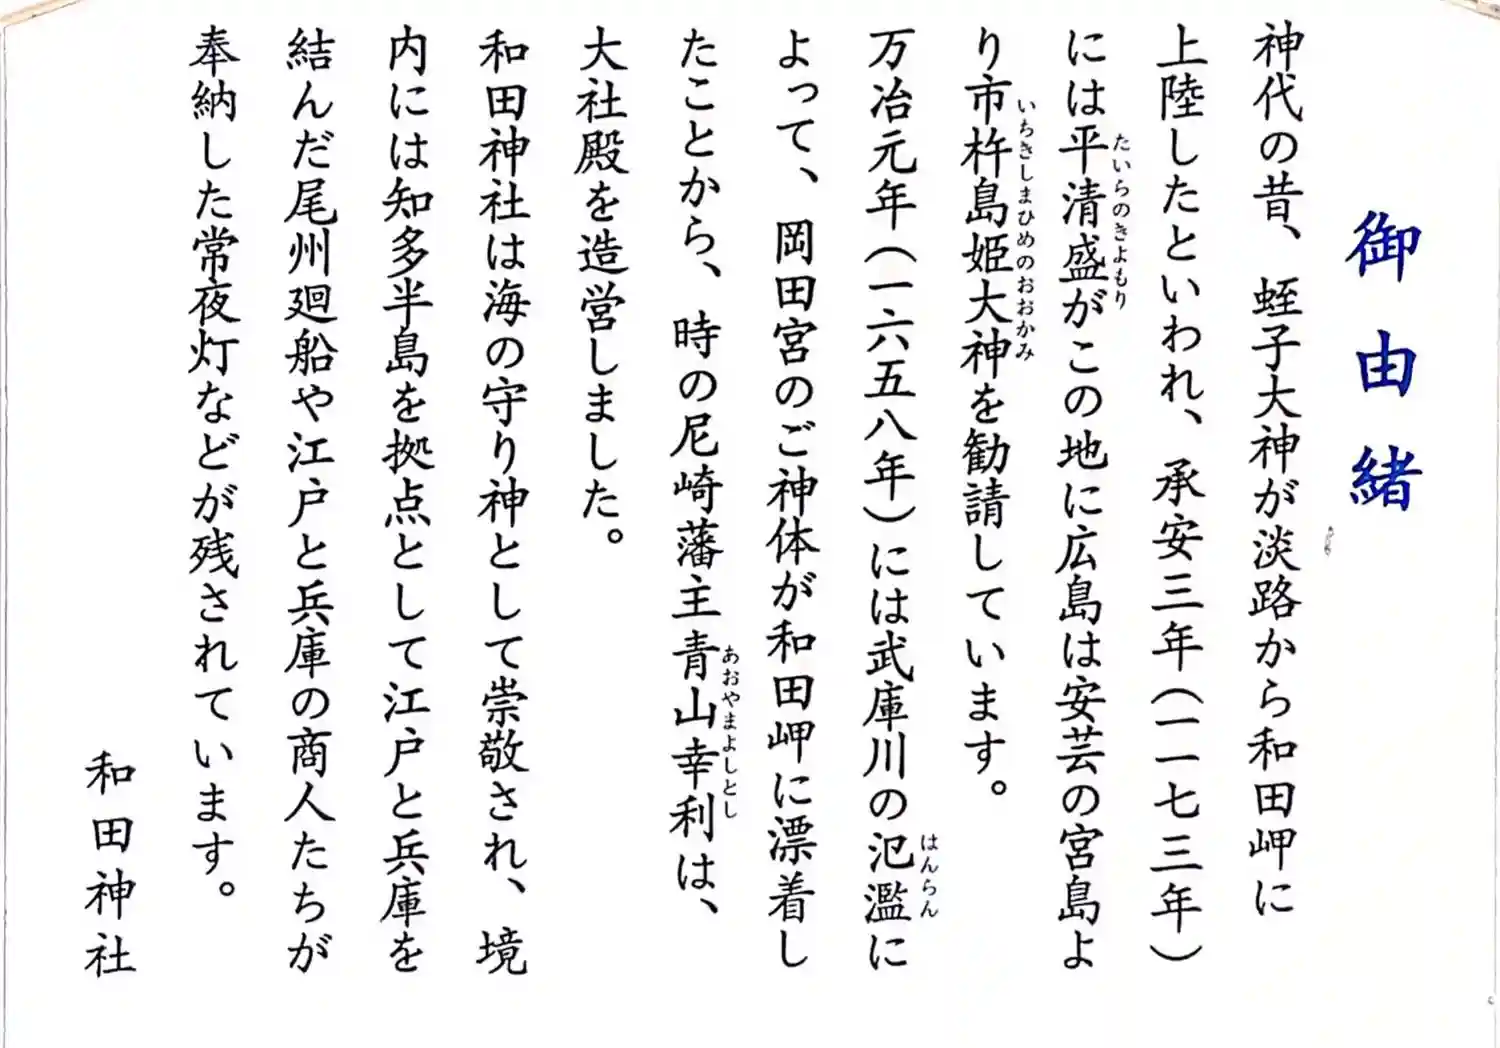 御由緒
神代の昔、蛭子大神が淡路から和田岬に
上陸したといわれ、承安三年（一一七三年）
には平清盛がこの地に広島は安芸の宮島よ
たいらのきよもり
り市杵島姫大神を勧請しています。
いちきしまひめのおおかみ
万治元年（一六五八年）には武庫川の氾濫に
はんらん
よって、岡田宮のご神体が和田岬に漂着し
たことから、時の尼崎藩主青山幸利は、
あおやまよしとし
大社殿を造営しました。
和田神社は海の守り神として崇敬され、境
内には知多半島を拠点として江戸と兵庫を
結んだ尾州廻船や江戸と兵庫の商人たちが
奉納した常夜灯などが残されています。
和田神社